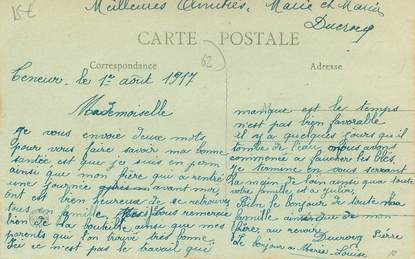 15€
Meilleures Amitiés, Marie et Marie
Ducrocq
CARTE POSTALE
62
Correspondance
Adresse
Teneur, le 1er août 1917
Mademoiselle
Je vous envoie deux mots
pour vous faire savoir ma bonne
santée est que je suis en perm
ainsi que mon frère qui à rentré
une journée avant moi,
ont est bien heureux de se retrouver
tous en famille Vous remercie
bien de La bouteille ainsi que mes
parents qui l'on trouvé très bonne.
Ici ce n'est pas le travail qui
manque est le temps
n'est pas bien favorable
il y a quelques jours qu'il
tombe de l'eau, nous avons
commencé a faucher les blés.
Je termine en vous serrant
la main de loin ainsi qua toute
votre famille, et a
Bien le bonjour de toute ma
famille ainsi que de mon
frère, au revoir
Ducrocq Pierre
le bonjour à Marie-Louise